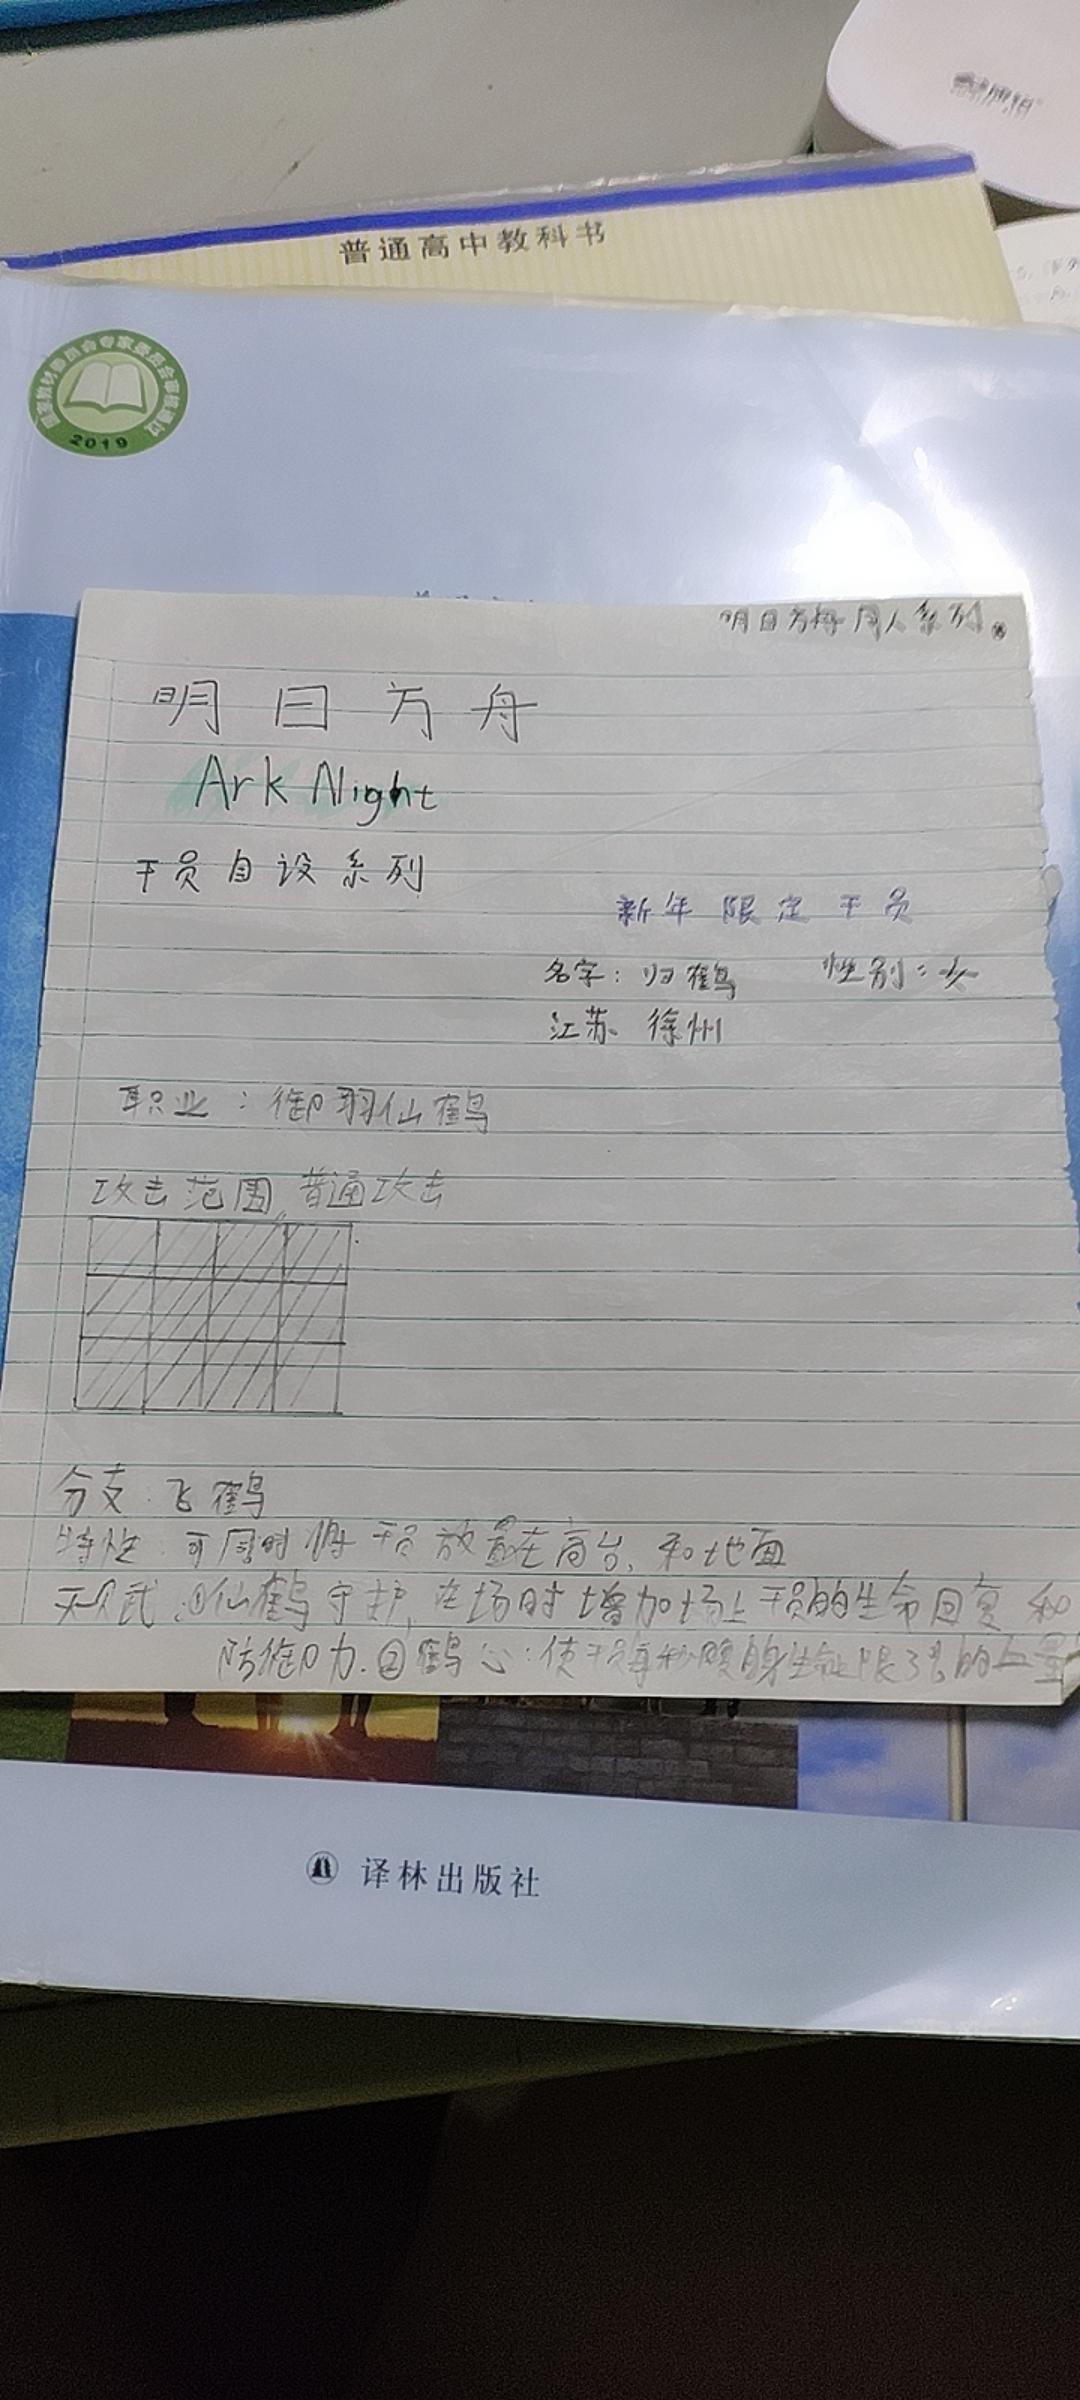 普通高中教科书
国家教材委员会专家委员会审核通过
2019
明日方舟同人系列
明日方舟
Ark Night
干员自设系列
新年限定干员
名字：归鹤 性别：女
江苏 徐州
职业：御羽仙鹤
攻击范围 普通攻击
分支：飞鹤
特性：可同时将干员放置在高台，和地面
天赋：①仙鹤守护，在场时增加场上干员的生命回复和
防御力.②鹤心：使干员每秒 自身生命 限3%的血量
译林出版社